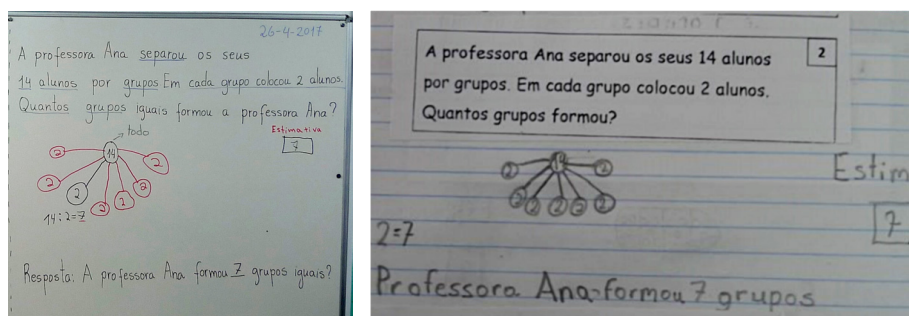 26-4-2017
A professora Ana separou os seus
14 alunos por grupos Em cada grupo colocou 2 alunos.
Quantos grupos iguais formou a professora Ana?
todo
Estimativa
7
14
2
2
2
2
2
2
2
14:2=7
Resposta: A professora Ana formou 7 grupos iguais?
A professora Ana separou os seus 14 alunos
2
por grupos. Em cada grupo colocou 2 alunos.
Quantos grupos formou?
14
2
2
2
2
2
2
2
Estim
7
2=7
Professora Ana formou 7 grupos